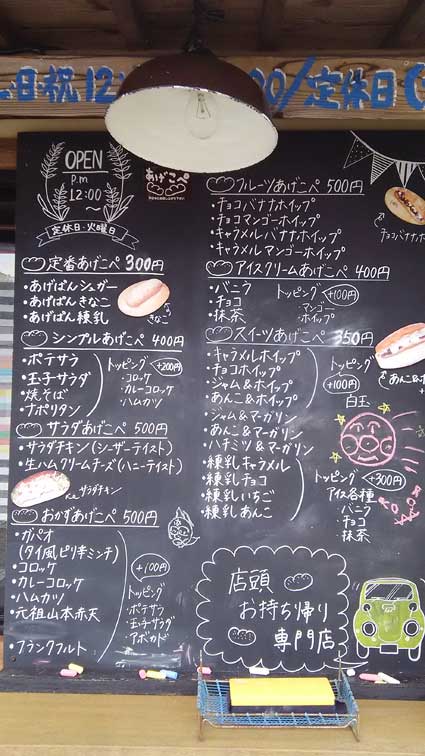 日祝12
定休日
OPEN
p.m
12:00~
定休日・火曜日
あげこぺ
定番あげこぺ 300円
・あげぱんシュガー
・あげぱんきなこ
・あげぱん練乳
きなこ
シンプルあげこぺ 400円
・ポテサラ
・玉子サラダ
・焼そば
・ナポリタン
トッピング +200円
・コロッケ
・カレーコロッケ
・ハムカツ
サラダあげこぺ 500円
・サラダチキン(シーザーテイスト)
・生ハムクリームチーズ(ハニーテイスト)
サラダチキン
おかずあげこぺ 500円
・ガパオ
(タイ風ピリ辛ミンチ)
・コロッケ
・カレーコロッケ
・ハムカツ
・元祖山本赤天
・フランクフルト
+100円
トッピング
・ポテサラ
・玉子サラダ
・アボカド
フルーツあげこぺ 500円
・チョコバナナホイップ
・チョコマンゴーホイップ
・キャラメルバナナホイップ
・キャラメルマンゴーホイップ
チョコバナナホ
アイスクリームあげこぺ 400円
・バニラ
・チョコ
・抹茶
トッピング +100円
・マンゴー
・ホイップ
スイーツあげこぺ 350円
・キャラメルホイップ
・チョコホイップ
・ジャム&ホイップ
・あんこ&ホイップ
・ジャム&マーガリン
・あんこ&マーガリン
・ハチミツ&マーガリン
・練乳キャラメル
・練乳チョコ
・練乳いちご
・練乳あんこ
トッピング
+100円
白玉
あんこ&ホ
トッピング +300円
アイス各種
・バニラ
・チョコ
・抹茶
店頭
お持ち帰り
専門店